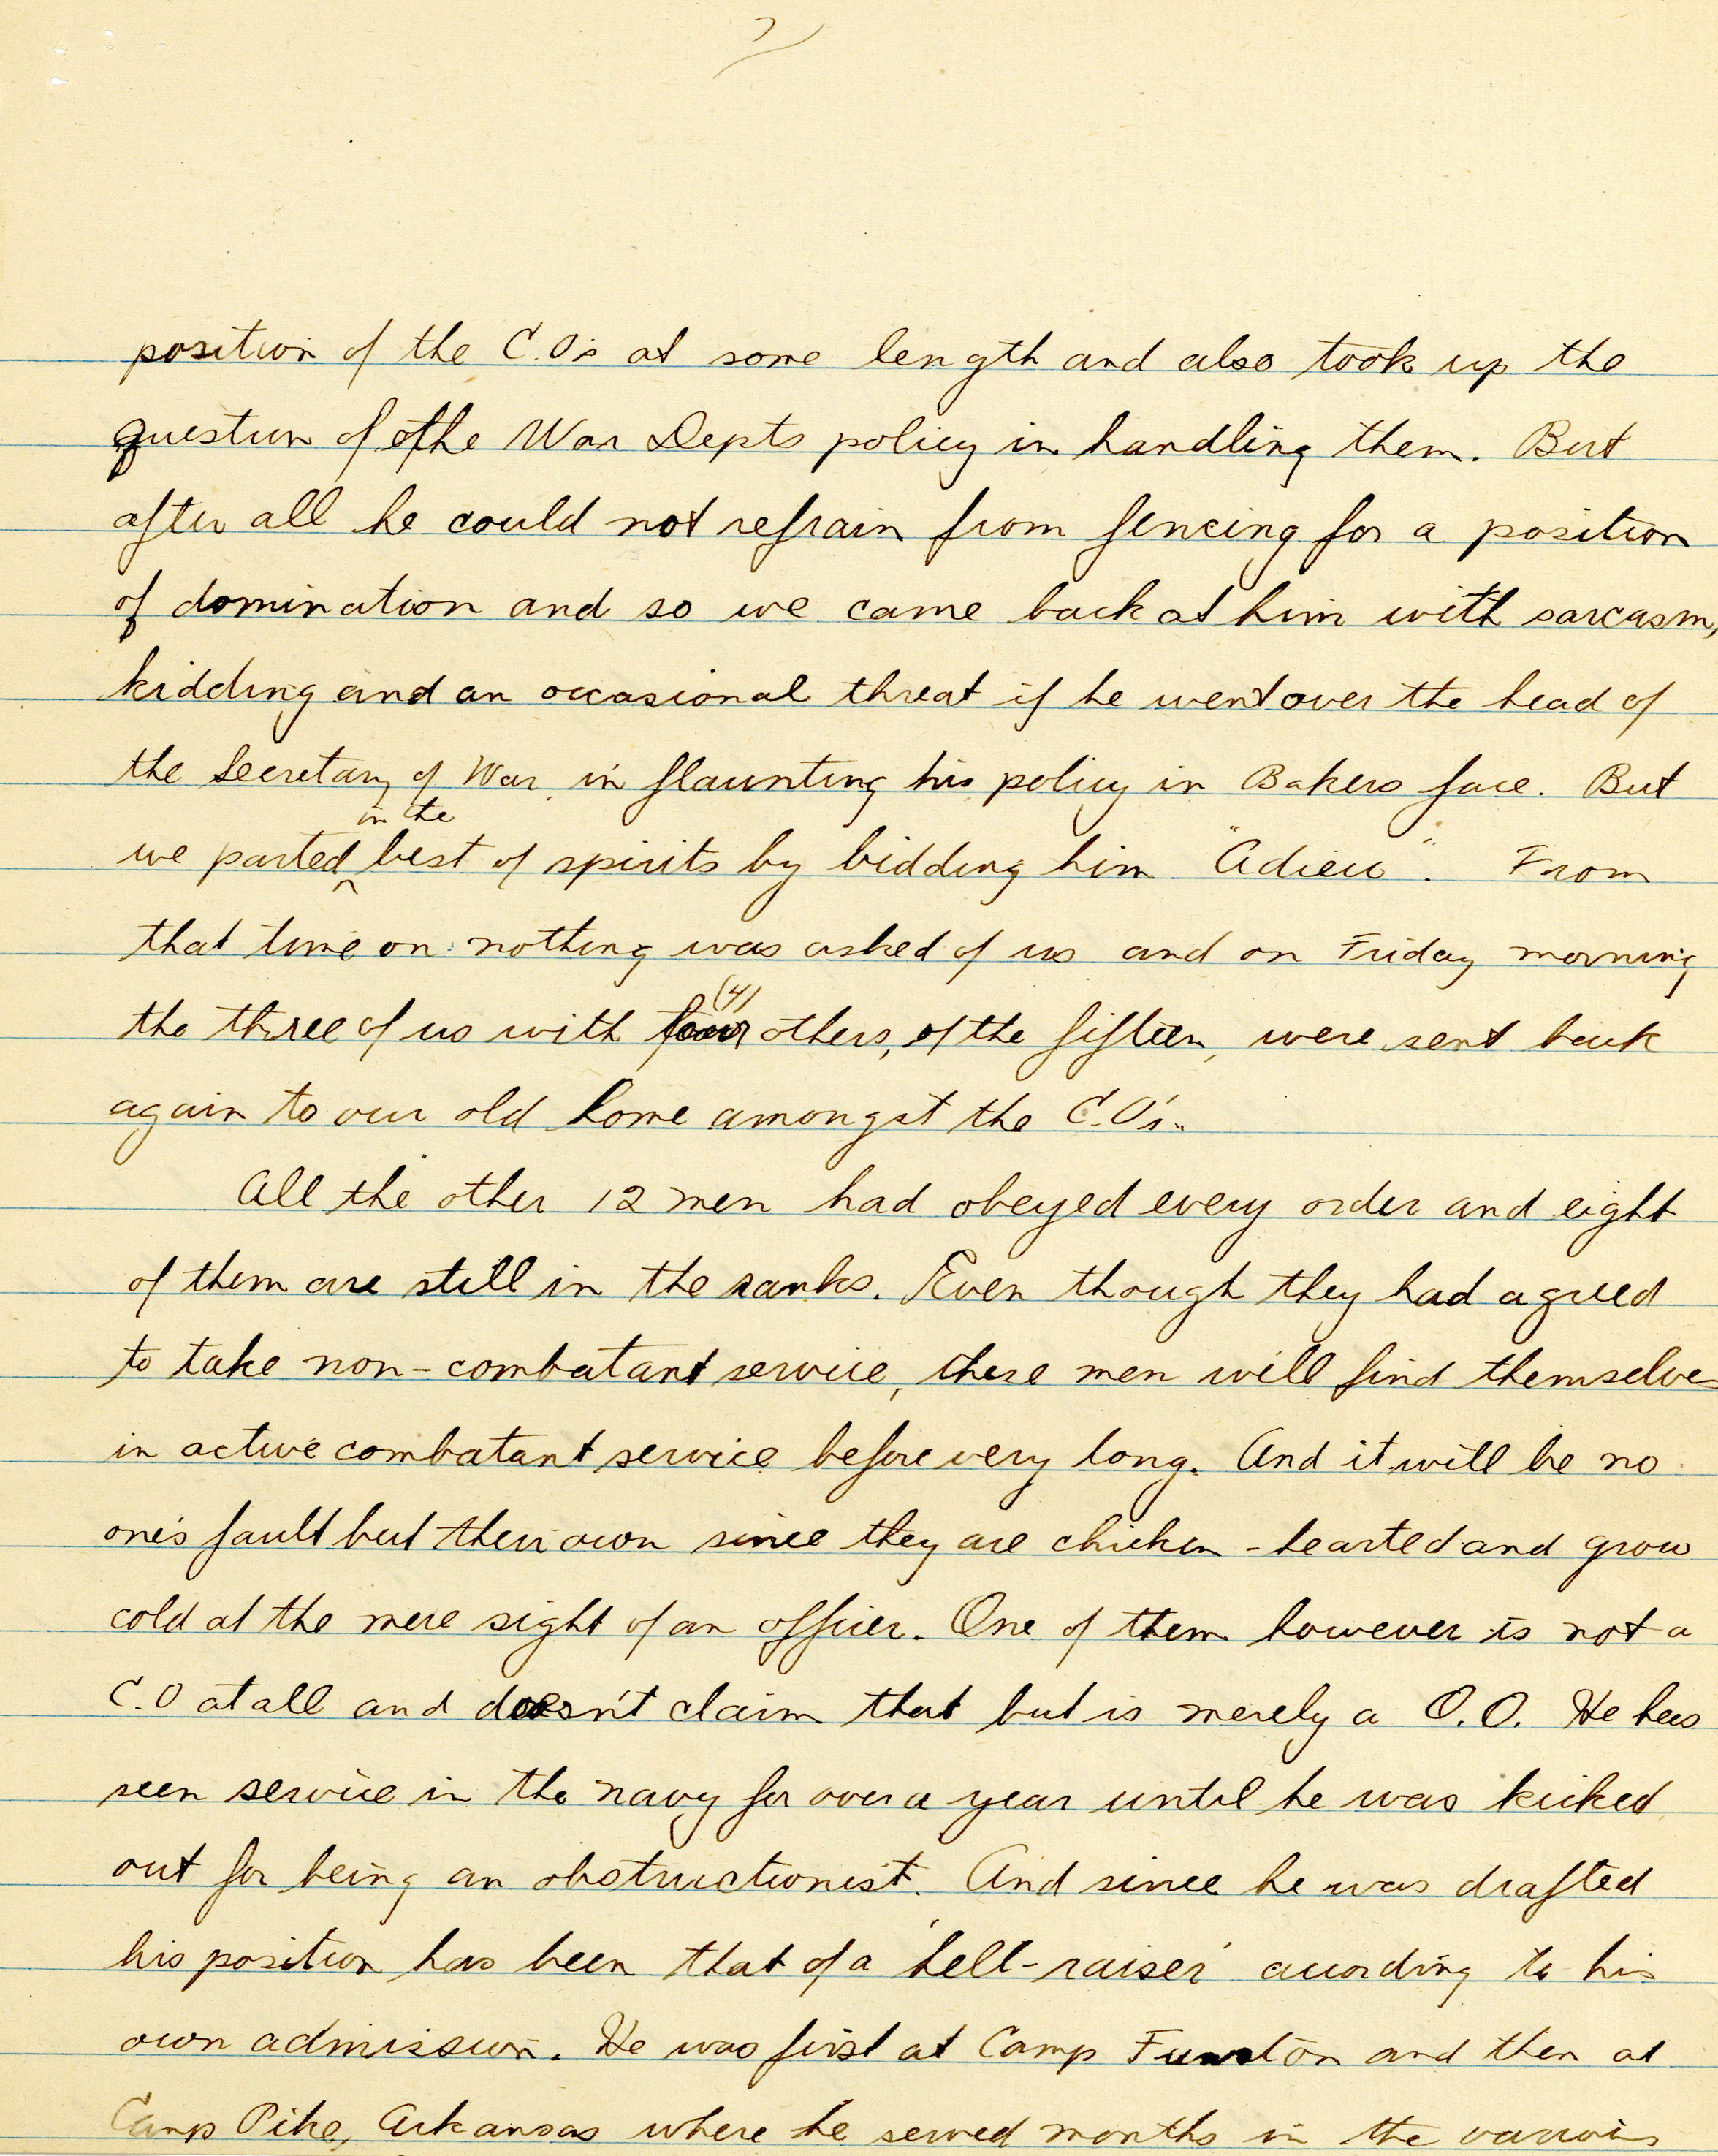 7
position of the C.O's at some length and also took up the
question of of the War Depts policy in handling them. But
after all he could not refrain from fencing for a position
of domination and so we came back at him with sarcasm,
kidding and an occasional threat if he went over the head of
the Secretary of War, in flaunting his policy in Bakers face. But
in the
we parted ^ best of spirits by bidding him "Adieu". From
that time on nothing was asked of us and on Friday morning
(4)
the three of us with four others, of the fifteen, were sent back
again to our old home amongst the C.O's.
All the other 12 men had obeyed every order and eight
of them are still in the ranks. Even though they had agreed
to take non-combatant service, these men will find themselves
in active combatant service before very long. And it will be no
one's fault but their own since they are chicken-hearted and grow
cold at the mere sight of an officer. One of them however is not a
C.O at all and doesn't claim that but is merely a O.O. He has
seen service in the navy for over a year until he was kicked
out for being an obstructionist. And since he was drafted
his position has been that of a 'hell-raiser' according to his
own admission. He was first at Camp Funston and then at
Camp Pike, Arkansas where he served months in the various